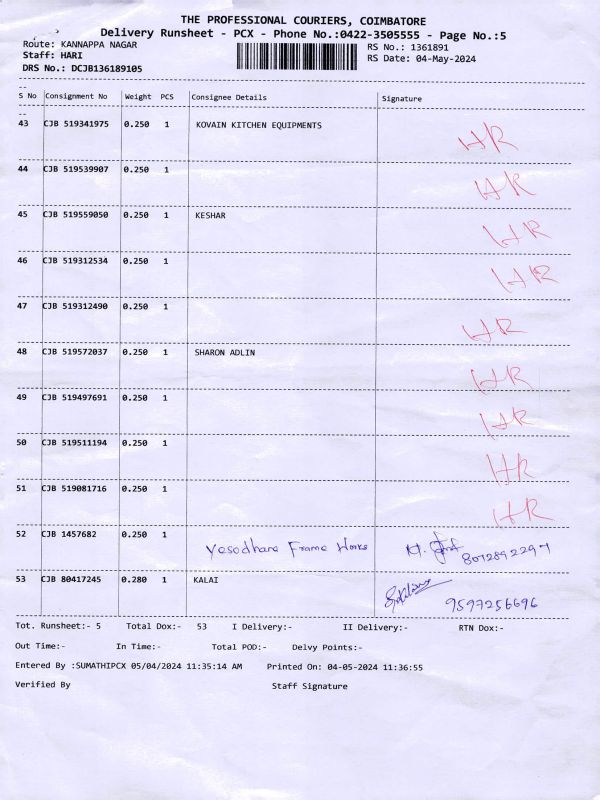 THE PROFESSIONAL COURIERS, COIMBATORE
Delivery Runsheet - PCX - Phone No.:0422-3505555 - Page No.:5
Route: KANNAPPA NAGAR RS No.: 1361891
Staff: HARI RS Date: 04-May-2024
DRS No.: DCJB136189105
S No Consignment No Weight PCS Consignee Details Signature
43 CJB 519341975 0.250 1 KOVAIN KITCHEN EQUIPMENTS HR
44 CJB 519539907 0.250 1 HR
45 CJB 519559050 0.250 1 KESHAR HR
46 CJB 519312534 0.250 1 HR
47 CJB 519312490 0.250 1 HR
48 CJB 519572037 0.250 1 SHARON ADLIN HR
49 CJB 519497691 0.250 1 HR
50 CJB 519511194 0.250 1 HR
51 CJB 519081716 0.250 1 HR
52 CJB 1457682 0.250 1 Yesodhara Frame Works
53 CJB 80417245 0.280 1 KALAI 9597256696
Tot. Runsheet:- 5 Total Dox:- 53 I Delivery:- II Delivery:- RTN Dox:-
Out Time:- In Time:- Total POD:- Delvy Points:-
Entered By :SUMATHIPCX 05/04/2024 11:35:14 AM Printed On: 04-05-2024 11:36:55
Verified By Staff Signature